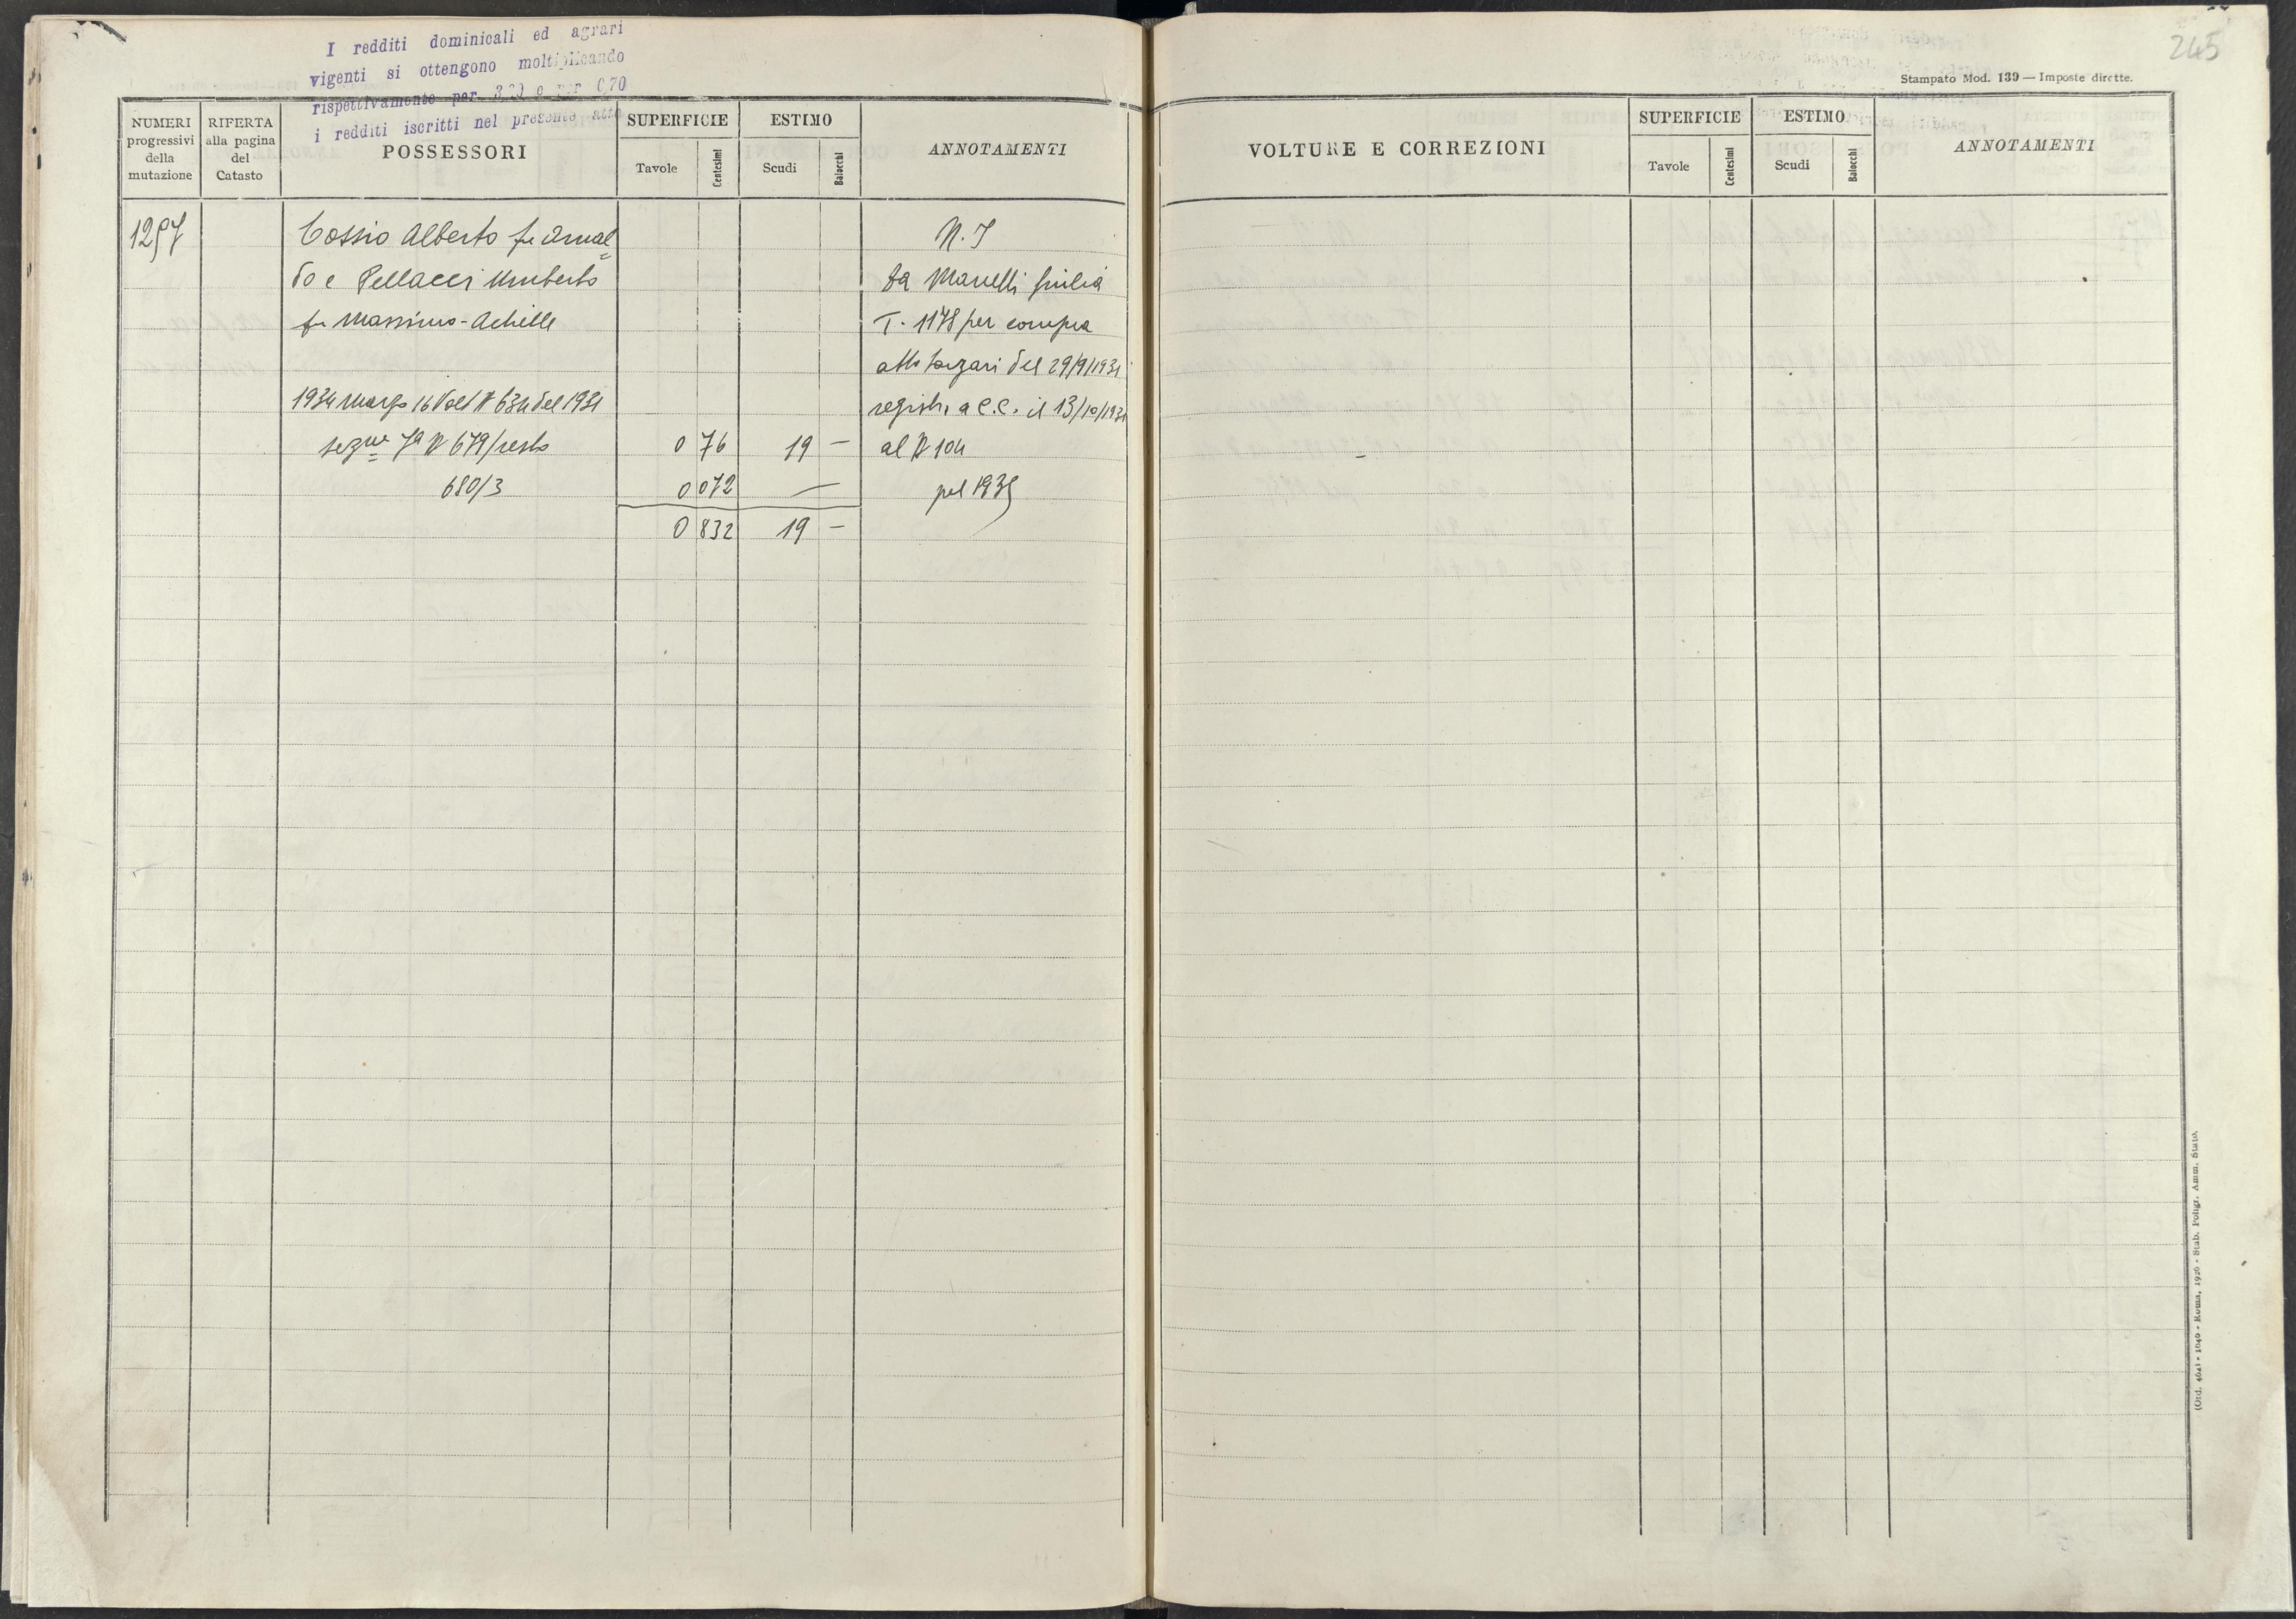 I redditi dominicali ed agrari
vigenti si ottengono moltiplicando
rispettivamente per 3,20 e per 0,70
i redditi iscritti nel presente atto
NUMERI progressivi della mutazione
RIFERTA alla pagina del Catasto
POSSESSORI
SUPERFICIE
Tavole
Centesimi
ESTIMO
Scudi
Baiocchi
ANNOTAMENTI
1297
Cossio Alberto fu Arnal=
do e Pellacci Umberto
fu Massimo-Achille
1934 Marzo 16 Volt N 634 del 1931
sezne 7a N 679/resto 0 76 19 —
680/3 0 072 —
0 832 19 —
N. I
da Manelli Giulia
T. 1178 per compra
atto del 29/9/1931
registr. a C.C. il 13/10/1931
al N 104
pel 1935
245
Stampato Mod. 139 — Imposte dirette.
VOLTURE E CORREZIONI
SUPERFICIE
Tavole
Centesimi
ESTIMO
Scudi
Baiocchi
ANNOTAMENTI
(Ord. 4641 - 1040 - Roma, 1926 - Stab. Poligr. Amm. Stato.